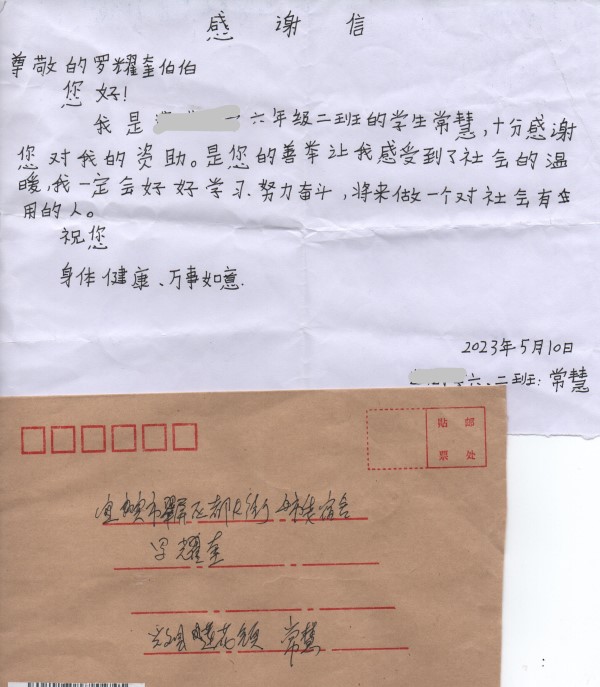 感谢信
尊敬的罗耀奎伯伯
您好!
我是 六年级二班的学生常慧,十分感谢
您对我的资助。是您的善举让我感受到了社会的温
暖,我一定会好好学习、努力奋斗,将来做一个对社会有
用的人。
祝您
身体健康、万事如意.
2023年5月10日
六、二班:常慧
贴 邮
票 处
宜宾市翠屏区都长街
罗耀奎
常慧